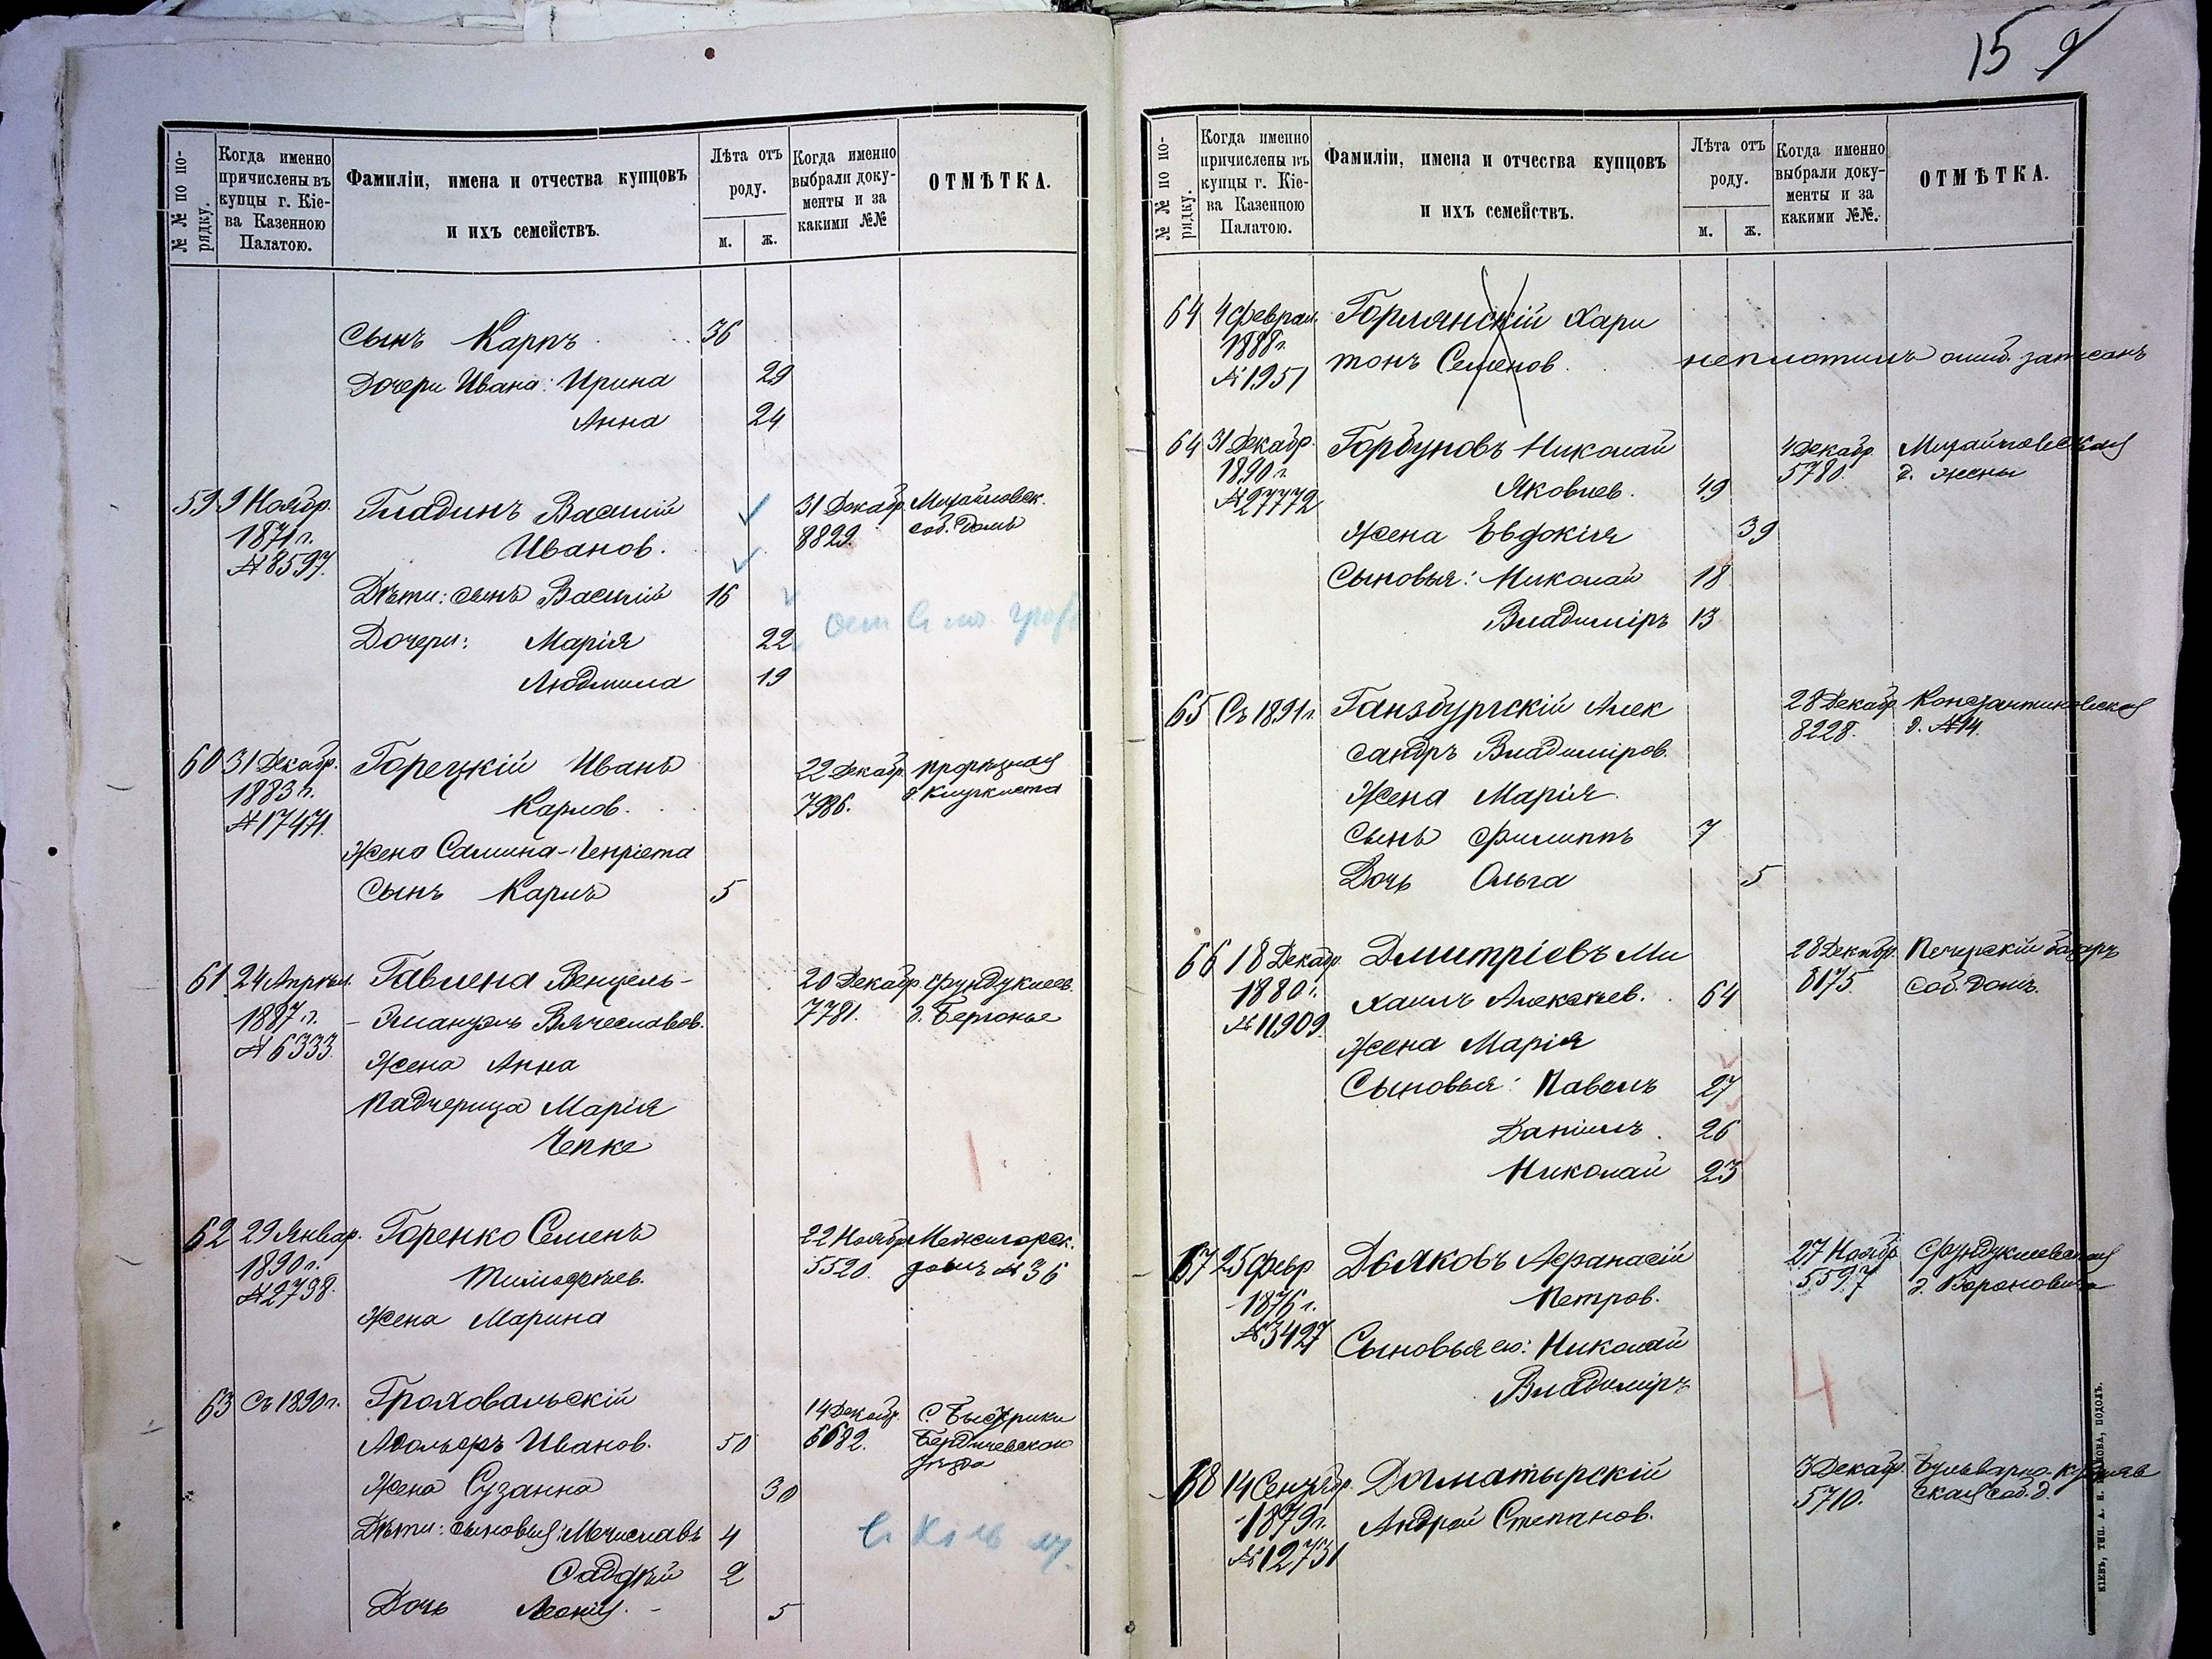 15 9
№ № по порядку.
Когда именно причислены въ купцы г. Кіева Казенною Палатою.
Фамиліи, имена и отчества купцовъ и ихъ семействъ.
Лѣта отъ роду.
м. ж.
Когда именно выбрали документы и за какими №№
ОТМѢТКА.
Сынъ Карпъ 36
Дочери Ивана: Ирина 29
Анна 24
59 9 Ноябр. Гладинъ Василій 31 Декабр. Михайловск.
1871 г. Иванов. 8829. соб. домъ
№ 8597.
Дѣти: сынъ Василій 16
Дочери: Марія 22
Людмила 19
60 31 Декабр. Горецкій Иванъ 22 Декабр. Прорѣзная
1883 г. Карлов. 7986. д.
№ 17471.
Жена Салина-Генріета
Сынъ Карлъ 5
61 24 Апрѣл. Гавлена Венцель- 20 Декабр. Фундуклеев.
1887 г. -Эмануэль Вячеславов. 7781. д. Бергонье
№ 6333.
Жена Анна
Падчерица Марія
Чепке
62 29 Январ. Горенко Семенъ 22 Ноябр. Межигорск.
1890 г. Тимофѣев. 5520. домъ № 36
№ 2738.
Жена Марина
63 Съ 1890 г. Гроховальскій 14 Декабр. С. Быстрики
Адольфъ Иванов. 50 6682. Бердичевскаго
уѣзда
Жена Сузанна 30
Дѣти: сыновья: Мечиславъ 4
2
Дочь Леонія. 5
№ № по порядку.
Когда именно причислены въ купцы г. Кіева Казенною Палатою.
Фамиліи, имена и отчества купцовъ и ихъ семействъ.
Лѣта отъ роду.
м. ж.
Когда именно выбрали документы и за какими №№.
ОТМѢТКА.
64 4 Феврал. Горлянскій Хари
1888 г. тонъ Семенов. неплотилъ ошиб. записанъ
№ 1951
64 31 Декабр. Горбуновъ Николай 4 Декабр. Михайловская
1890 г. Яковлев. 49 5780. д. жены
№ 27772
Жена Евдокія 39
Сыновья: Николай 18
Владиміръ 13
65 Съ 1891 г. Ганзбургскій Алек 28 Декабр. Константиновская
сандръ Владиміров. 8228. д. № 14.
Жена Марія
Сынъ Филиппъ 7
Дочь Ольга 5
66 18 Декабр. Дмитріевъ Ми 28 Декабр. Печерскій базаръ
1880 г. хаилъ Алексѣев. 64 8175. соб. домъ.
№ 11909.
Жена Марія
Сыновья: Павелъ 27
Даніилъ. 26
Николай 23
67 25 Февр. Дьяковъ Афанасій 27 Ноябр. Фундуклеевская
1876 г. Петров. 5597 д. Вороновича
№ 3427
Сыновья его: Николай
Владиміръ
4
68 14 Сентябр. Догматырскій 3 Декабр. Бульварно-Кудряв
1879 г. Андрей Степанов. 5710. ская соб. д.
№ 12731
КІЕВЪ, ТИП. ПОДОЛЪ.